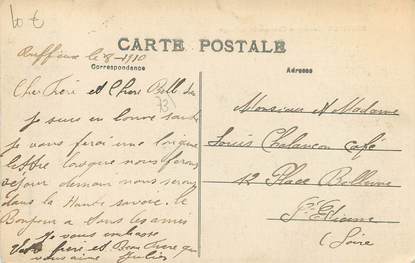 10 €
Ruffieux le 8-1910
CARTE POSTALE
Correspondance
Adresse
Cher frère et Chere Belle Sœur
73
je suis en bonne santé
je vous ferai une longue
lettre lorsque nous ferons
sejour demain nous serons
dans la Haute savoie. le
Bonjour a tous les amis
Je vous embrasse
Votre frère et Beau frere qui
vous aime Julien
Monsieur et Madame
Louis Chalancon café
12 Place Bellevue
St Etienne
(Loire)